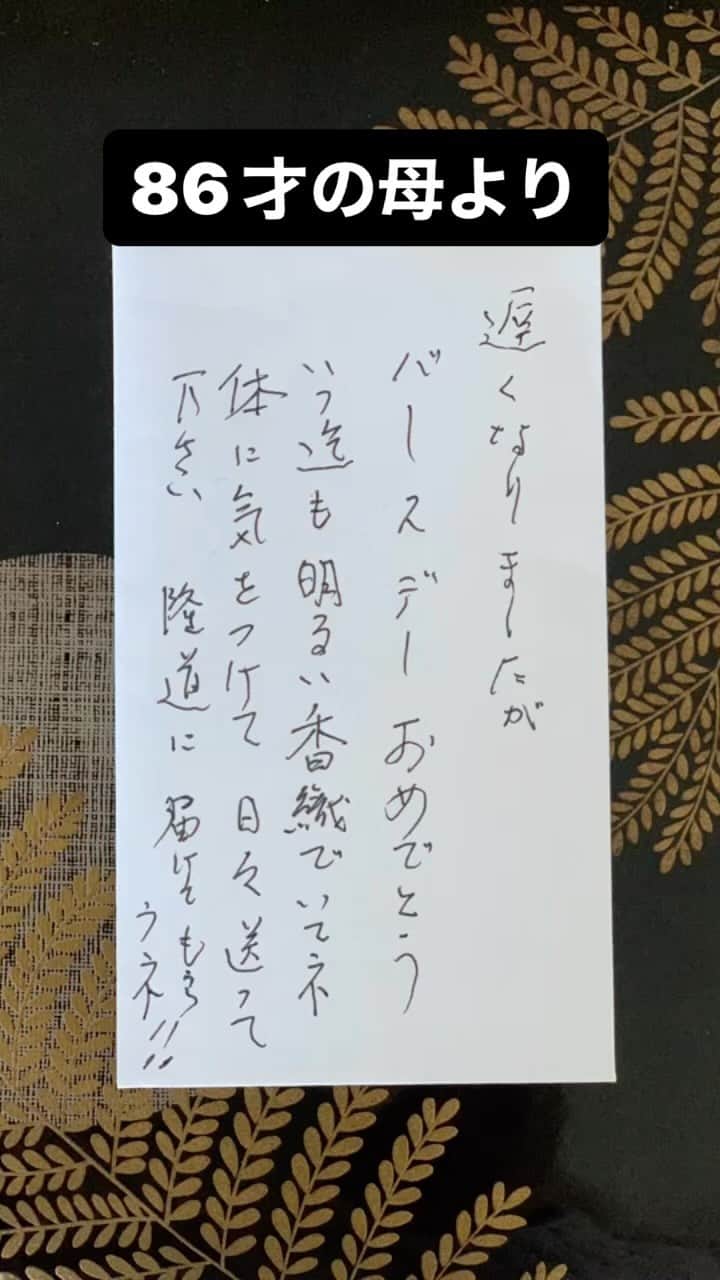 86才の母より
遅くなりましたが
バースデーおめでとう
いつ迄も明るい香織でいてネ
体に気をつけて 日々送って
下さい 隆道に届けてもら
うネ!!